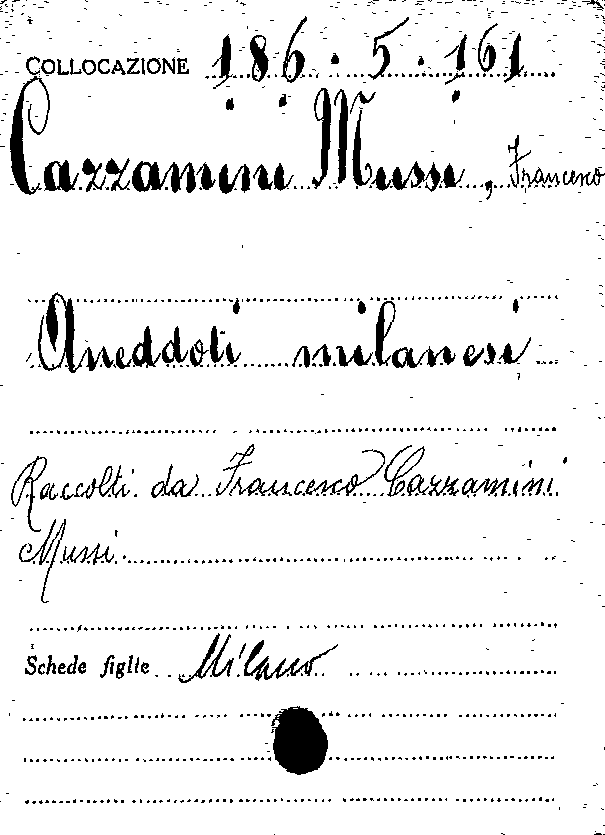 COLLOCAZIONE 186.5.161
Cazzamini Mussi, Francesco
Aneddoti milanesi
Raccolti da Francesco Cazzamini
Mussi.
Schede figlie Milano